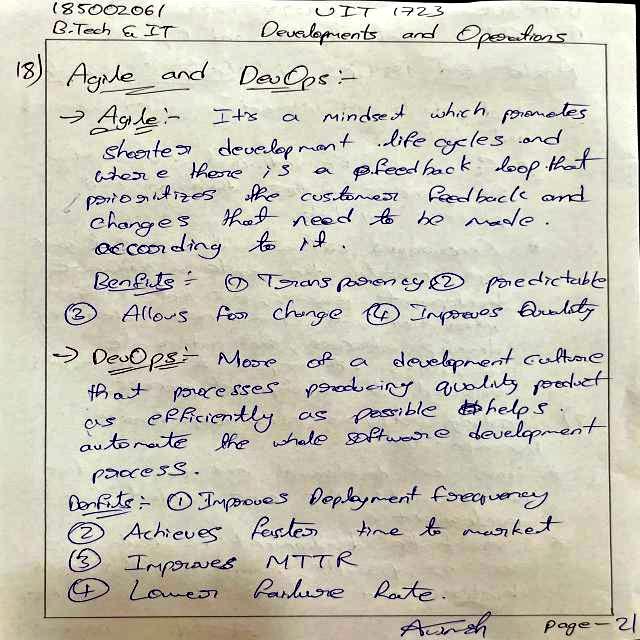 185002061 UIT 1723
B.Tech & IT Developments and Operations
18) Agile and DevOps:-
→ Agile:- It's a mindset which promotes
shorter development life cycles and
where there is a feedback loop that
prioritizes the customer feedback and
changes that need to be made.
according to it.
Benfits:- ① Transparency ② predictable
③ Allows for change ④ Improves Quality
→ DevOps:- More of a development culture
that processes producing quality product
as efficiently as possible helps.
automate the whole software development
process.
Benfits:- ① Improves Deployment frequency
② Achieves faster time to market
③ Improves MTTR
④ Lower Failure Rate.
page-21